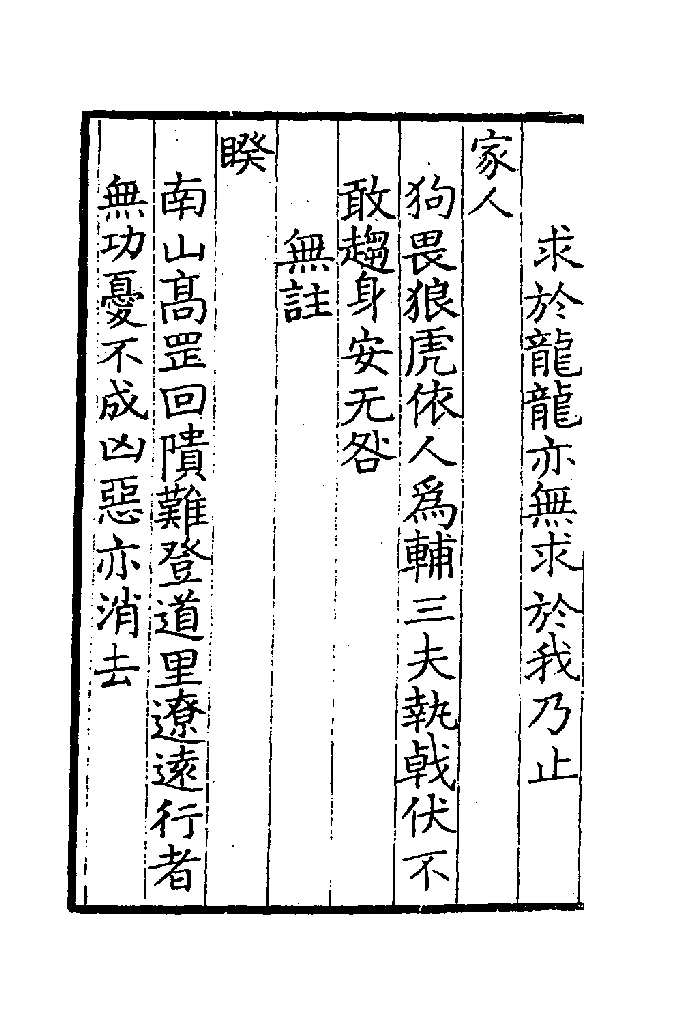 求於龍龍亦無求於我乃止
家人
狗畏狼虎依人為輔三夫執戟伏不
敢趨身安无咎
無註
睽
南山高罡回隤難登道里遼遠行者
無功憂不成凶惡亦消去